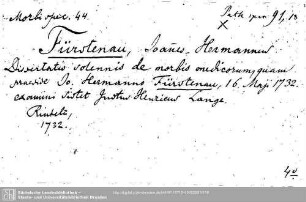 Morb. spec. 44.
Path. spec. 91, 18
X
Fürstenau, Joañes Hermannus
Dissertatio solennis de morbis medicorum, quam
praeside Jo. Hermanno Fürstenau, 16. Maji 1732.
examini sistet Justus Henricus Lange.
Rintelz,
1732.
4°
Sächsische Landesbibliothek –
Staats- und Universitätsbibliothek Dresden